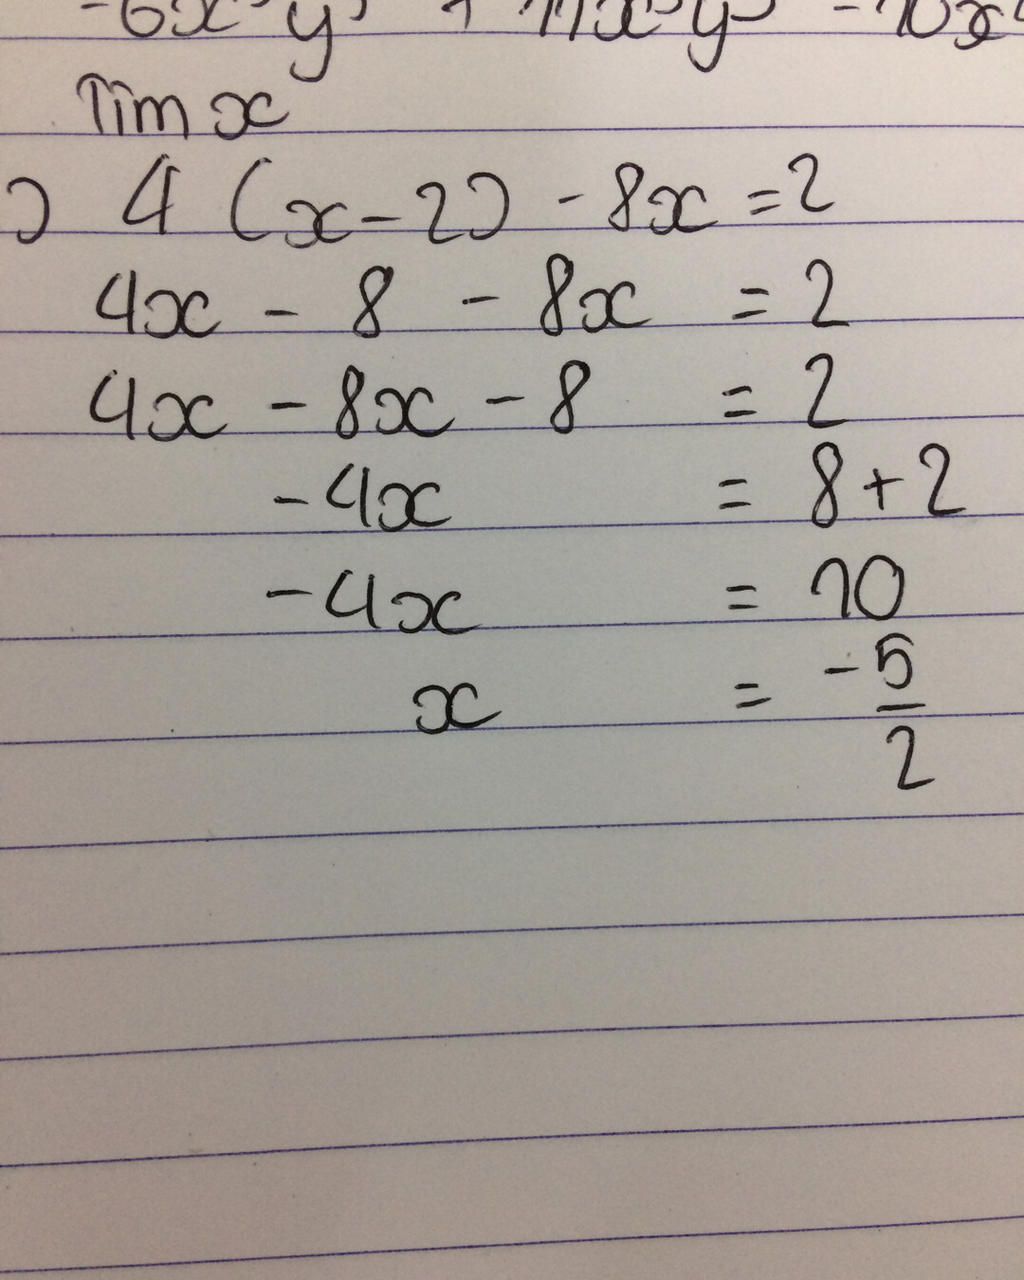 Tìm x
) 4 (x - 2) - 8x = 2
4x - 8 - 8x = 2
4x - 8x - 8 = 2
-4x = 8 + 2
-4x = 10
x = -5/2